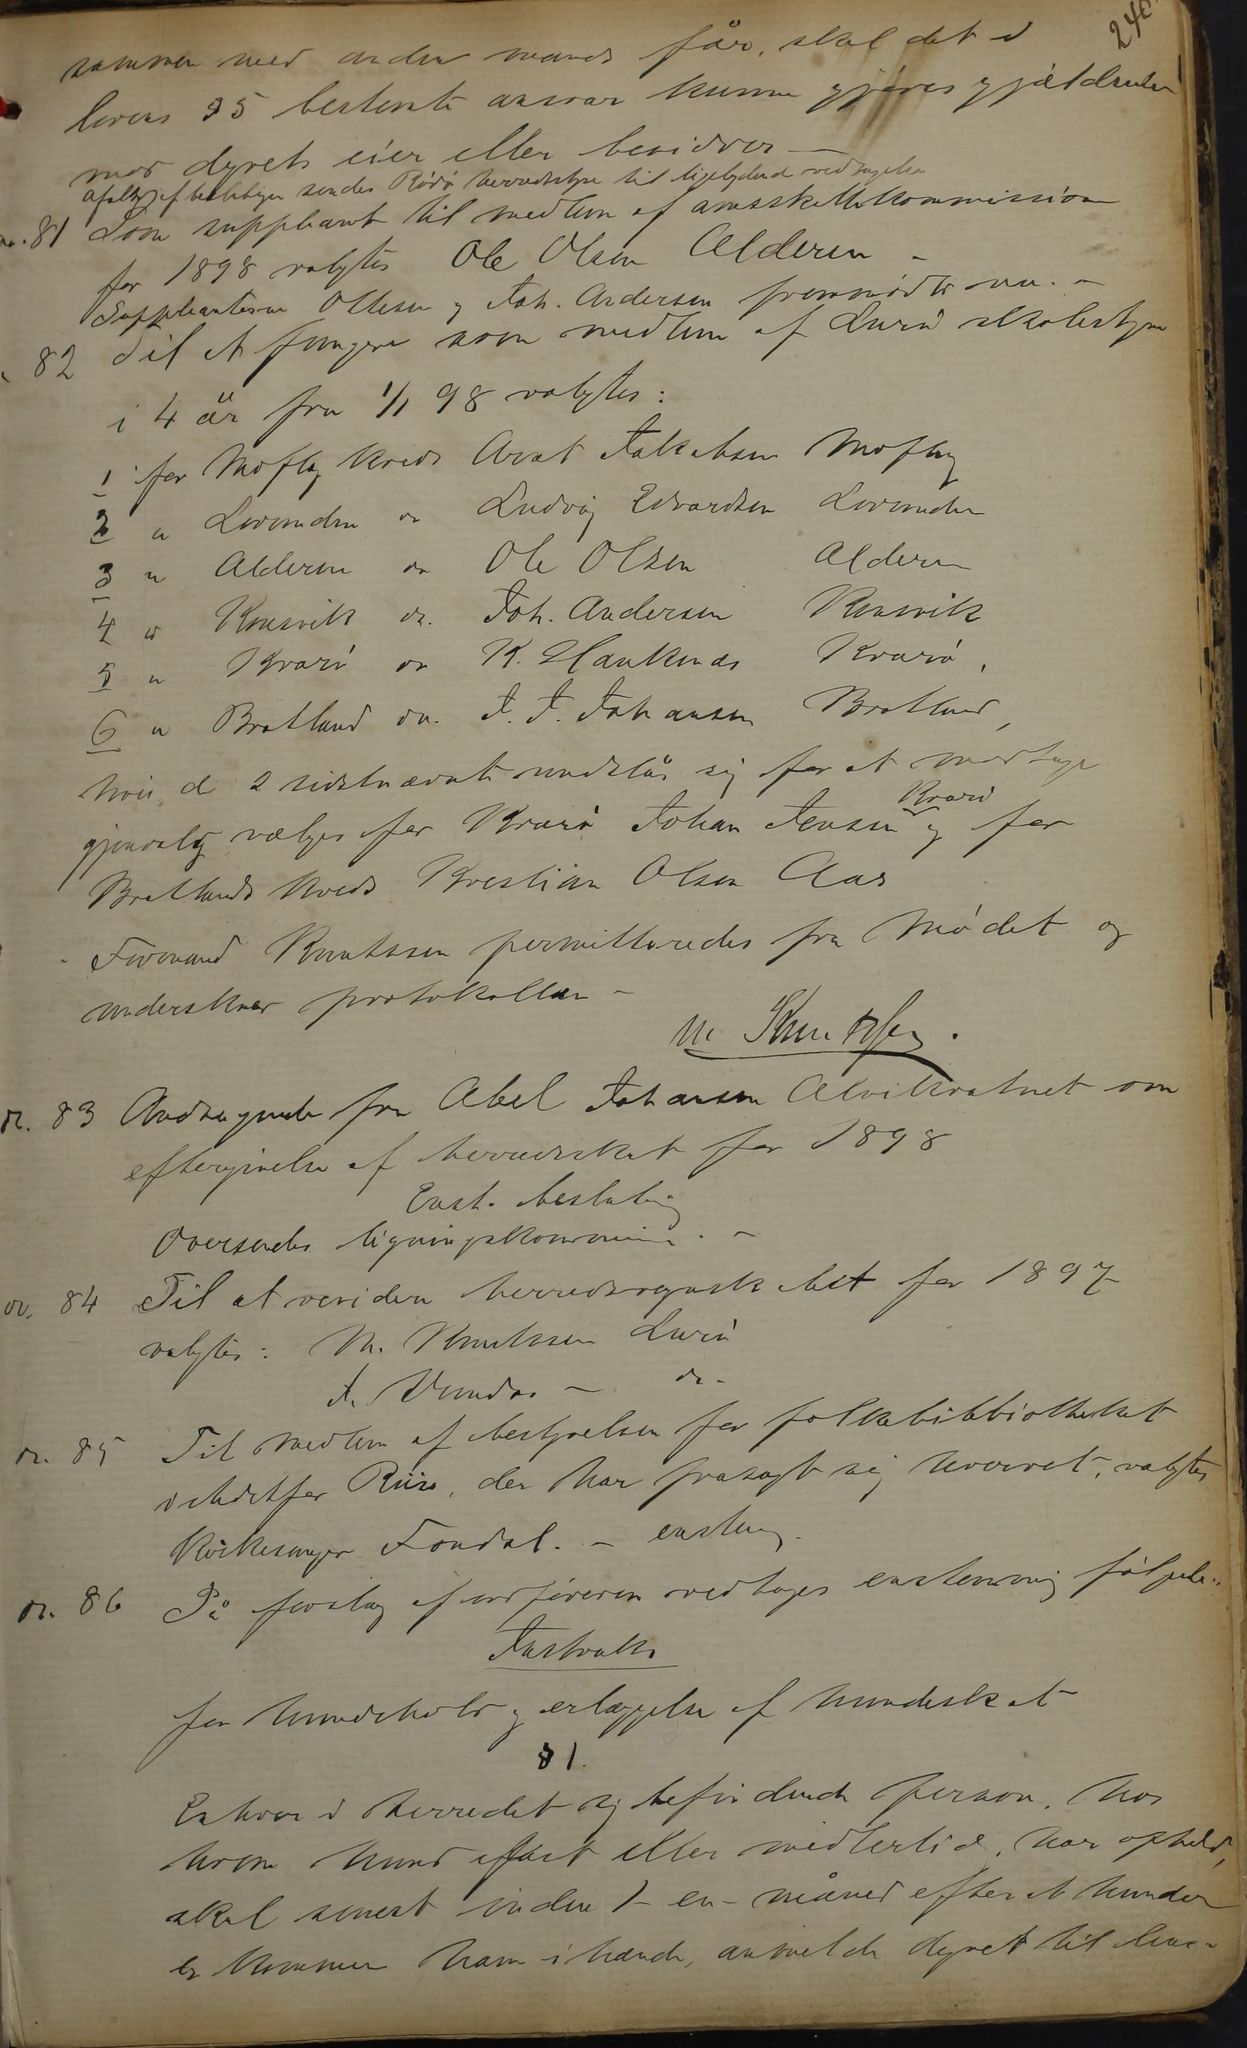 240
sammen med anden mands får, skal det i
lovens § 5 bestemte ansvar kunne gjøres gjældende
mod dyrets eier eller besidder —
Afskr. af beslutningen sendes Rödö herredstyre til ligelydende vedtagelse
nr. 81 Som suppleant til medlem af amtsskattekommission
for 1898 valgtes Ole Olsen Alderen –
Suppleanterne Ollesen og Joh. Andersen fremmødte nu. –
" 82 Til at fungere som medlem af Lurö skolestyre
i 4 år fra 1/1 98 valgtes:
1 for Moflag kreds Arnt Jakobsen Moflag
2 " Lovunden do Ludvig Edvardsen Lovunden
3 " Alderen do Ole Olsen Alderen
4 " Konsvik do. Joh. Andersen Konsvik
5 " Kvarö do K. Haukenæs Kvarö,
6 " Bratland do. J. J. Johansen Bratland,
hvis de 2 sidstnævnte undslår sig for at modtage
gjenvalg vælges for Kvarö Johan Jensen Kvarö og for
Bratlands kreds Krestian Olsen Aas
Formand Knutssen permitteredes fra Mödet og
underskrev protokollen –
M Knutssen.
nr. 83 Andragende fra Abel Johansen Alvikvatnet om
eftergivelse af herredsskat for 1898
Enst. beslutning
Oversendes ligningskommission. –
nr. 84 Til at revidere herredsregnskabet for 1897
valgtes: M. Knutssen Lurö
do –
nr. 85 Til medlem af bestyrelsen for folkebibliotheket
istedetfor Riise, der har frasagt sig hvervet, valgtes
Kirkesanger Fondal. – enstem.
nr. 86 På forslag af ordföreren vedtages enstemmig følgende:
Instruks
for hundehold og erlæggelse af hundeskat
§ 1.
Enhver i herredet sig befindende person, hos
hvem hund fast eller midlertidig har ophold,
skal senest inden 1 – en – måned efter at hunden
er kommen ham ihænde, anmelde dyret til lens-